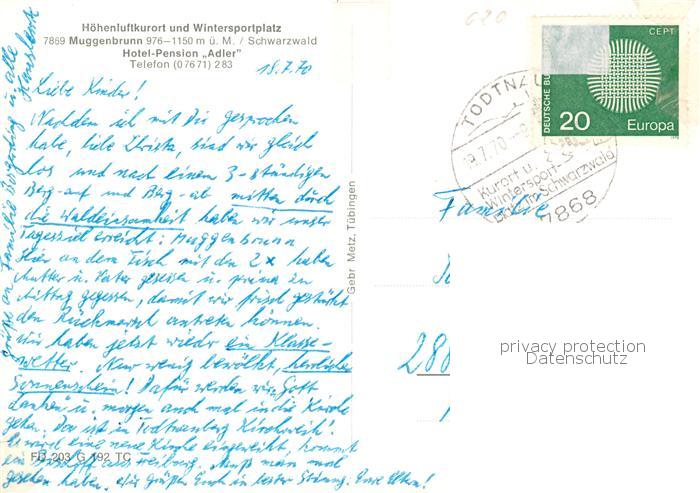 Höhenluftkurort und Wintersportplatz
7869 Muggenbrunn 976–1150 m ü. M. / Schwarzwald
Hotel-Pension „Adler"
Telefon (07671) 283
18.7.70
Liebe Kinder!
Nachdem ich mit Dir gesprochen
habe, liebe Christa, sind wir gleich
los und nach einem 3-stündigen
Berg-auf und Berg-ab mitten durch
die Waldeinsamkeit haben wir unser
Tagesziel erreicht: Muggenbrunn
Hier an dem Tisch mit den 2 x haben
Mutter u. Vater gesessen u. prima zu
Mittag gegessen, damit wir frisch gestärkt
den Rückmarsch antreten können.
Wir haben jetzt wieder ein Klasse-
wetter. Nur wenig bewölkt, herrlicher
Sonnenschein! Dafür werden wir Gott
danken u. morgen auch mal in die Kirche
gehen. Da ist in Todtnauberg Kirchweih!
Es wird eine neue Kirche eingeweiht, kommt
ein Bischof aus Freiburg. Muß man mal
gesehen haben. Wir grüßen Euch in bester Stimmung. Eure Eltern!
Grüße an Familie u. alle
FD 203 G 192 TC
Gebr. Metz, Tübingen
CEPT
DEUTSCHE BUNDESPOST
20 Europa
TODTNAU
18.7.70
Kurort u.
Wintersport-
platz im Schwarzwald
7868
Familie
28
privacy protection
Datenschutz
020